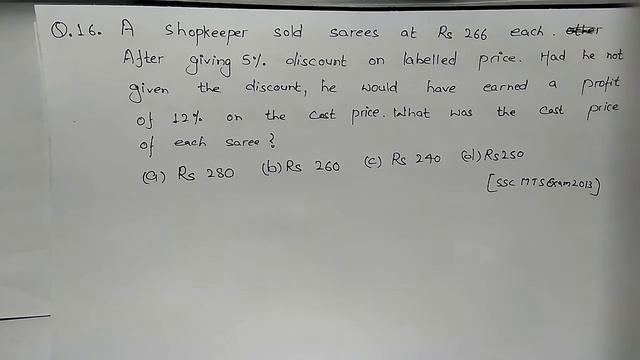 Q.16. A shopkeeper sold sarees at Rs 266 each.
After giving 5% discount on labelled price. Had he not
given the discount, he would have earned a profit
of 12% on the cost price. What was the cost price
of each saree?
(a) Rs 280 (b) Rs 260 (c) Rs 240 (d) Rs 250
[SSC MTS Exam 2013]